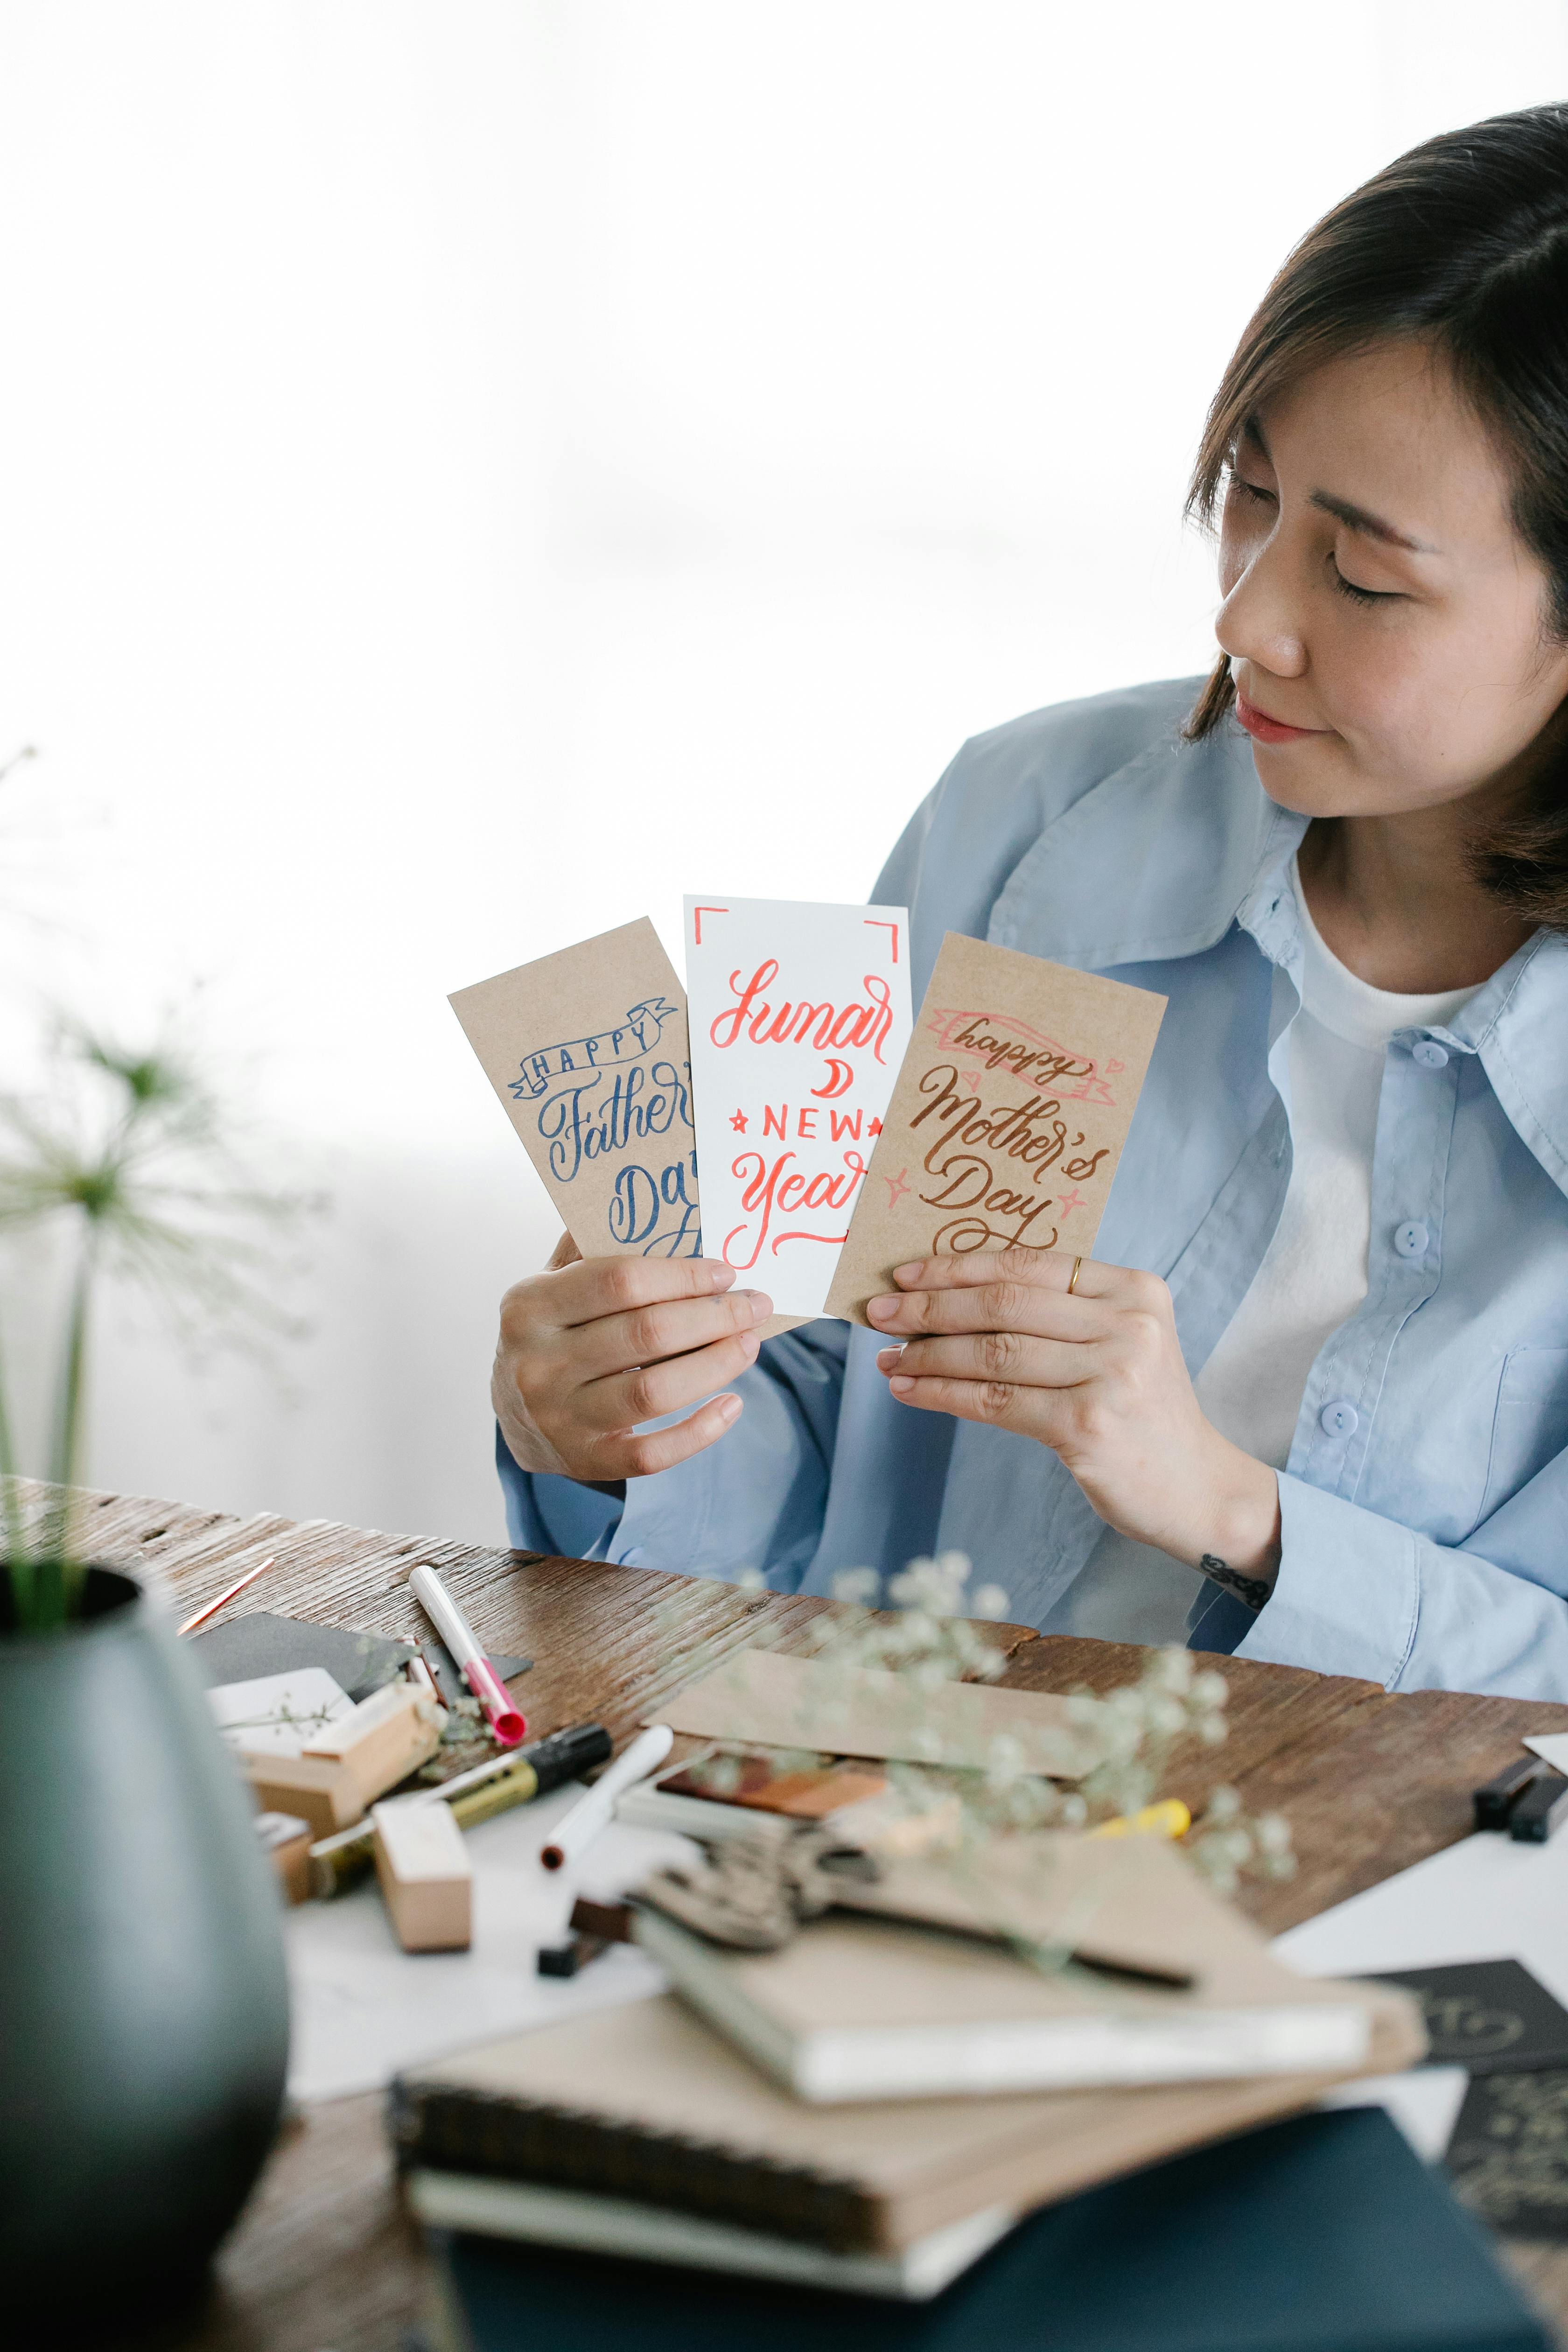 HAPPY
Father'
Da
Lunar
NEW
Year
happy
Mother's
Day